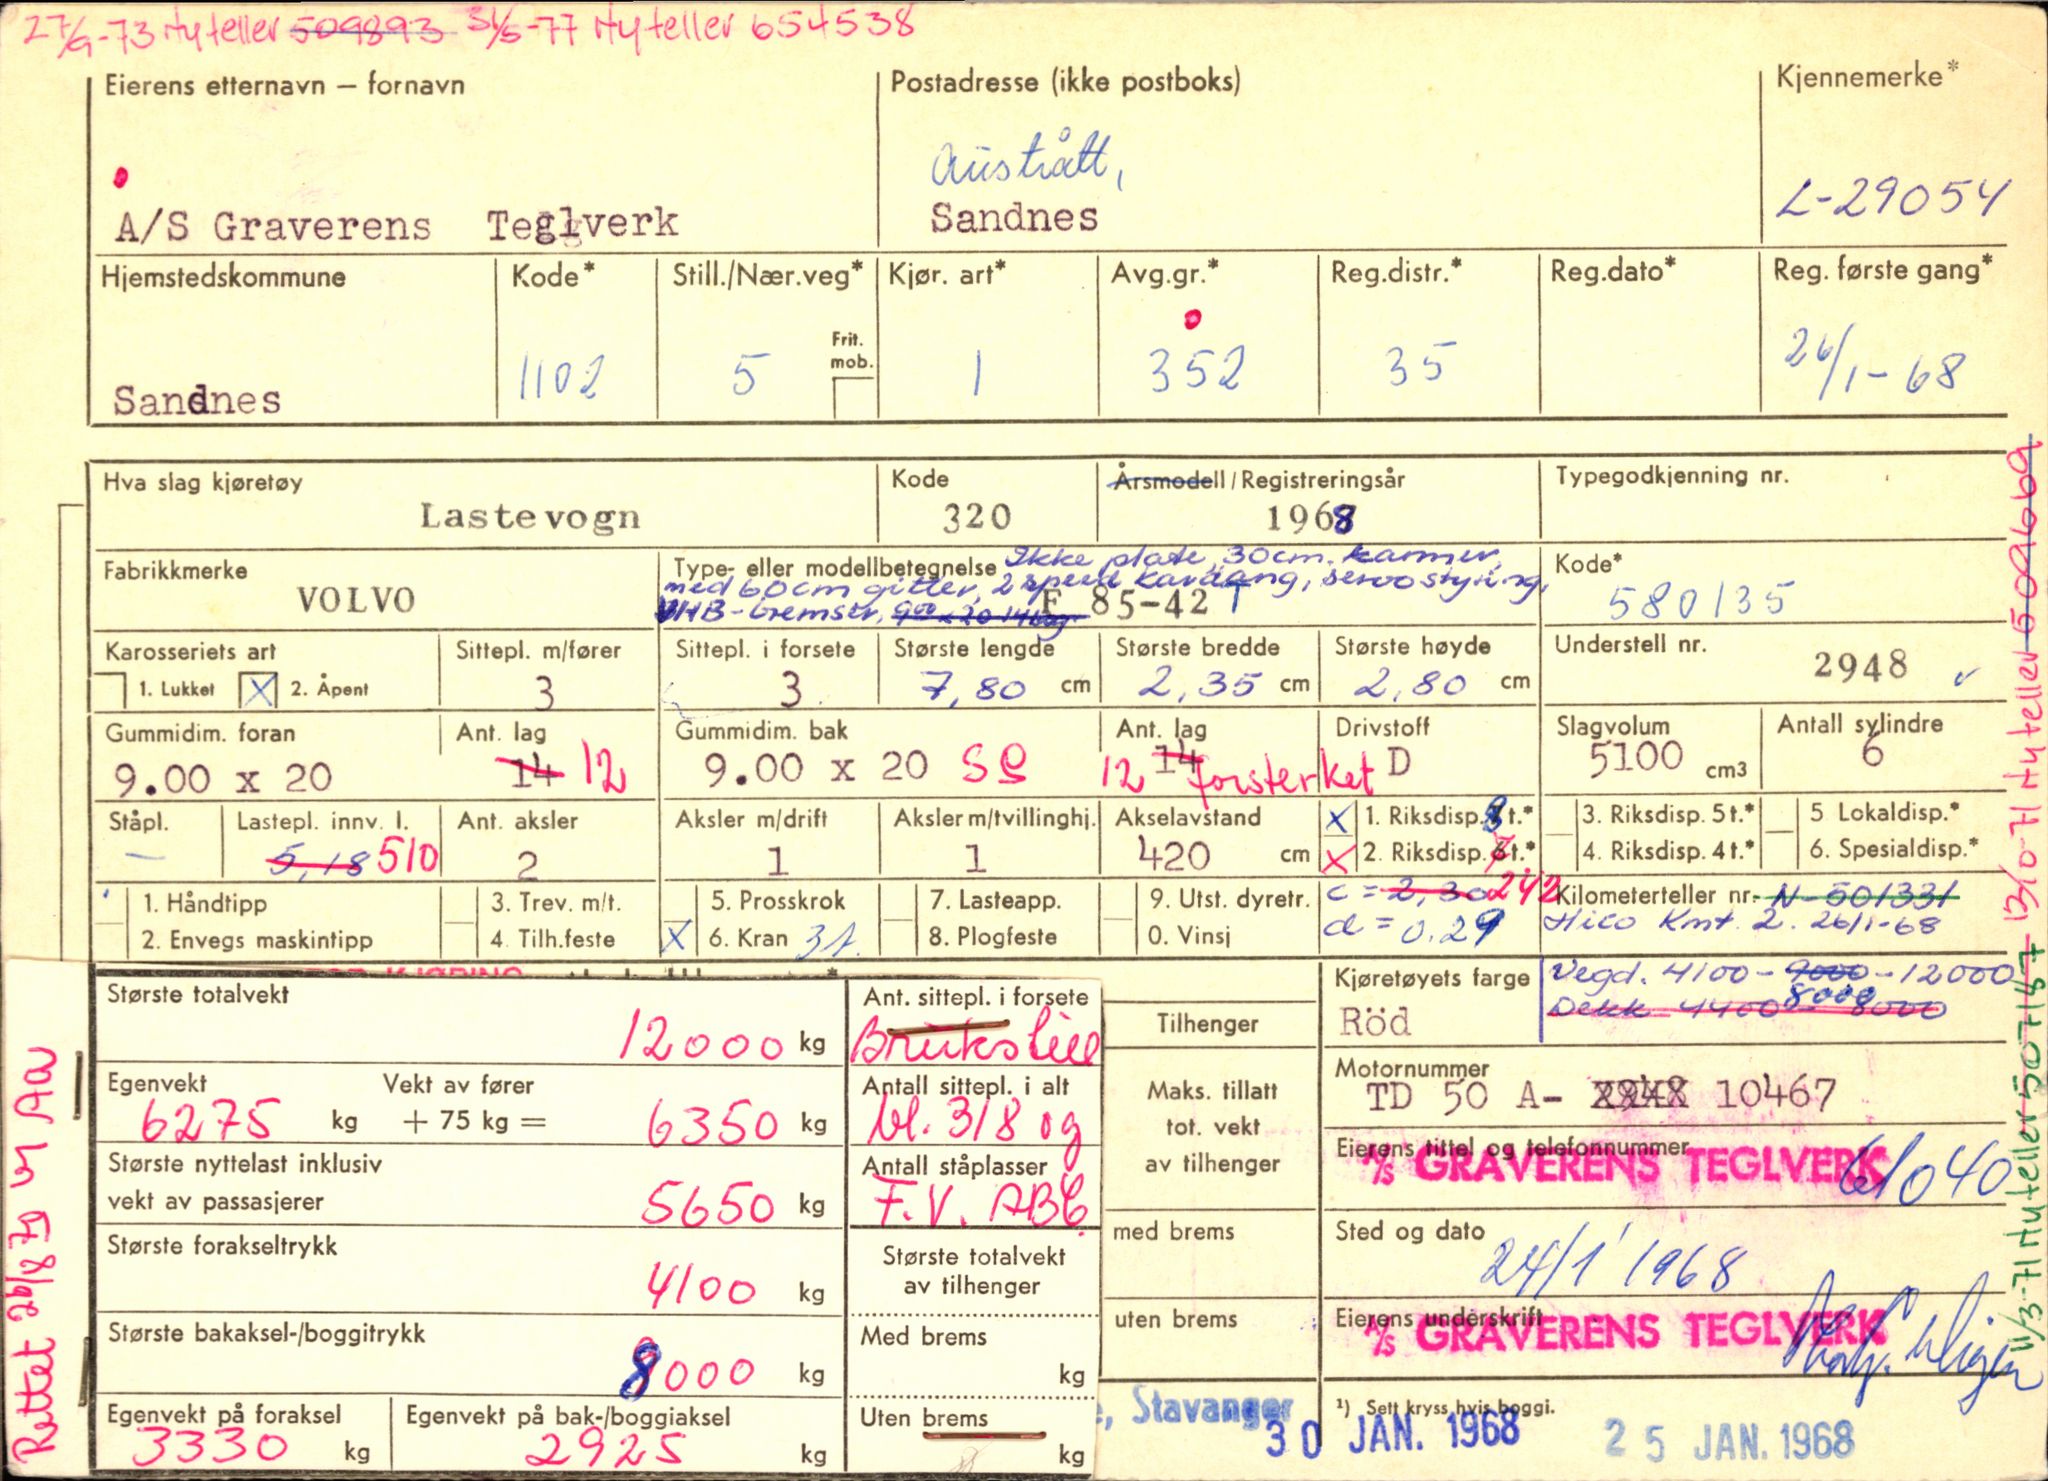 27/9-73 Ny teller 509893 31/5-77 Ny teller 654538
Eierens etternavn — fornavn
Postadresse (ikke postboks)
Kjennemerke*
Austrått,
A/S Graverens Teglverk
Sandnes
L-29054
Hjemstedskommune
Kode*
Still./Nær.veg*
Kjør. art*
Avg.gr.*
Reg.distr.*
Reg.dato*
Reg. første gang*
Frit. mob.
Sandnes
1102
5
1
352
35
26/1-68
Hva slag kjøretøy
Kode
Årsmodell/Registreringsår
Typegodkjenning nr.
Lastevogn
320
1968
Fabrikkmerke
Type- eller modellbetegnelse
Ikke plate, 30cm. karmer,
med 60cm gitter, 2 speed kardang, servostyring,
VHB-bremser,
Kode*
VOLVO
F 85-42 T
580135
Karosseriets art
1. Lukket
X
2. Åpent
Sittepl. m/fører
3
Sittepl. i forsete
3
Største lengde
7,80 cm
Største bredde
2,35 cm
Største høyde
2,80 cm
Understell nr.
2948
Gummidim. foran
9.00 x 20
Ant. lag
14 12
Gummidim. bak
9.00 x 20
Ant. lag
12 14 forsterket
Drivstoff
D
Slagvolum
5100 cm3
Antall sylindre
6
Ståpl.
—
Lastepl. innv. l.
5,18 510
Ant. aksler
2
Aksler m/drift
1
Aksler m/tvillinghj.
1
Akselavstand
420 cm
X 1. Riksdisp. 8 t.*
X 2. Riksdisp. 7 t.*
3. Riksdisp. 5 t.*
4. Riksdisp. 4 t.*
5 Lokaldisp.*
6. Spesialdisp.*
1. Håndtipp
2. Envegs maskintipp
3. Trev. m/t.
4. Tilh.feste
5. Prosskrok
X 6. Kran 3t.
7. Lasteapp.
8. Plogfeste
9. Utst. dyretr.
0. Vinsj
c = 2,30 242
d = 0.29
Kilometerteller nr. N-501331
Hico Kmt. 2. 26/1-68
Største totalvekt
12000 kg
Ant. sittepl. i forsete
Egenvekt
6275 kg
Vekt av fører
+ 75 kg =
6350 kg
Antall sittepl. i alt
bl. 3/8 og
Største nyttelast inklusiv
vekt av passasjerer
5650 kg
Antall ståplasser
F.V. ABC
Største forakseltrykk
4100 kg
Største totalvekt
av tilhenger
Største bakaksel-/boggitrykk
8000 kg
Med brems
kg
Egenvekt på foraksel
3330 kg
Egenvekt på bak-/boggiaksel
2925 kg
Uten brems
kg
Tilhenger
Maks. tillatt
tot. vekt
av tilhenger
med brems
uten brems
Kjøretøyets farge
Röd
Vegd. 4100-9000-12000
8000
Dekk 4400 - 8000
Motornummer
TD 50 A- 2948 10467
Eierens tittel og telefonnummer
A/S GRAVERENS TEGLVERK
61040
Sted og dato
24/1 1968
Eierens underskrift
A/S GRAVERENS TEGLVERK
, Stavanger
¹) Sett kryss hvis boggi.
30 JAN. 1968
25 JAN. 1968
Rettet 26/8 70
11/3-71 Ny teller 507187 13/10-71 Ny teller 509669